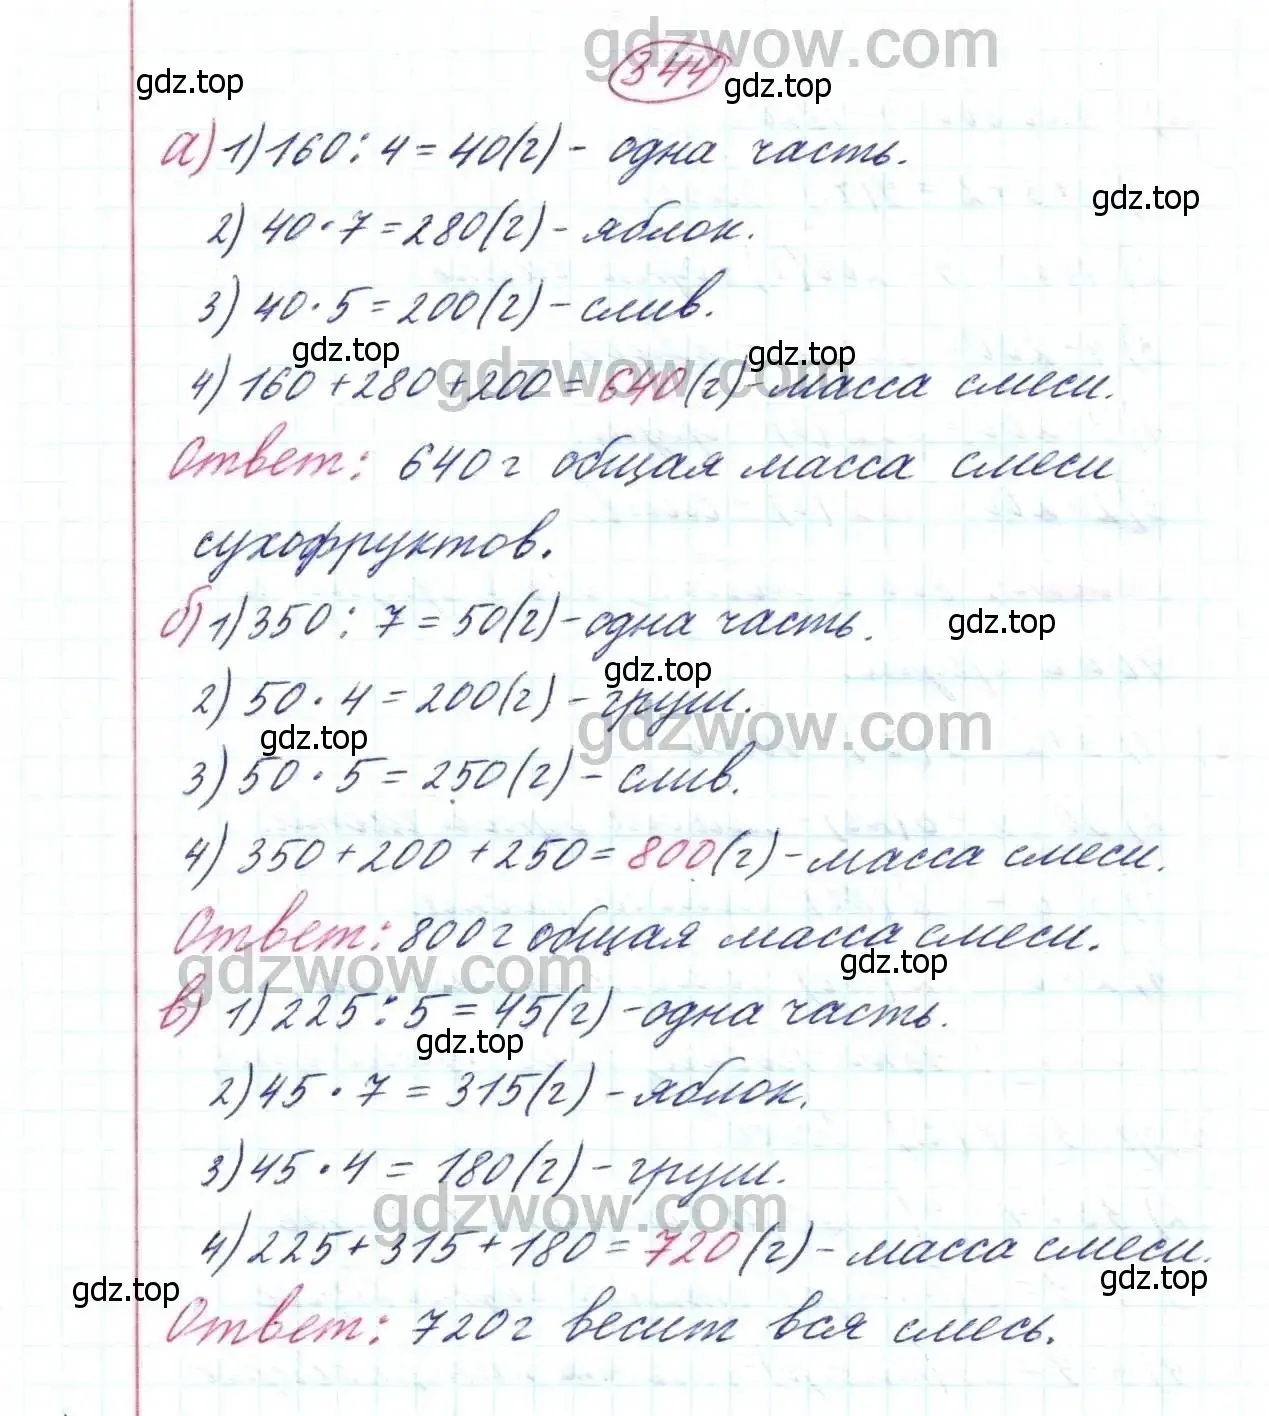 gdzwow.com
344
gdz.top
gdz.top
а) 1) 160 : 4 = 40 (г) - одна часть.
gdz.top
2) 40 · 7 = 280 (г) - яблок.
3) 40 · 5 = 200 (г) - слив.
gdz.top
gdzwow.com
gdz.top
4) 160 + 280 + 200 = 640 (г) - масса смеси.
Ответ: 640 г общая масса смеси
сухофруктов.
б) 1) 350 : 7 = 50 (г) - одна часть.
gdz.top
gdz.top
2) 50 · 4 = 200 (г) - груш.
gdzwow.com
gdz.top
3) 50 · 5 = 250 (г) - слив.
4) 350 + 200 + 250 = 800 (г) - масса смеси.
Ответ: 800 г общая масса смеси.
gdzwow.com
gdz.top
в) 1) 225 : 5 = 45 (г) - одна часть.
gdz.top
2) 45 · 7 = 315 (г) - яблок.
3) 45 · 4 = 180 (г) - груш.
gdzwow.com
4) 225 + 315 + 180 = 720 (г) - масса смеси.
gdz.top
gdz.top
Ответ: 720 г весит вся смесь.